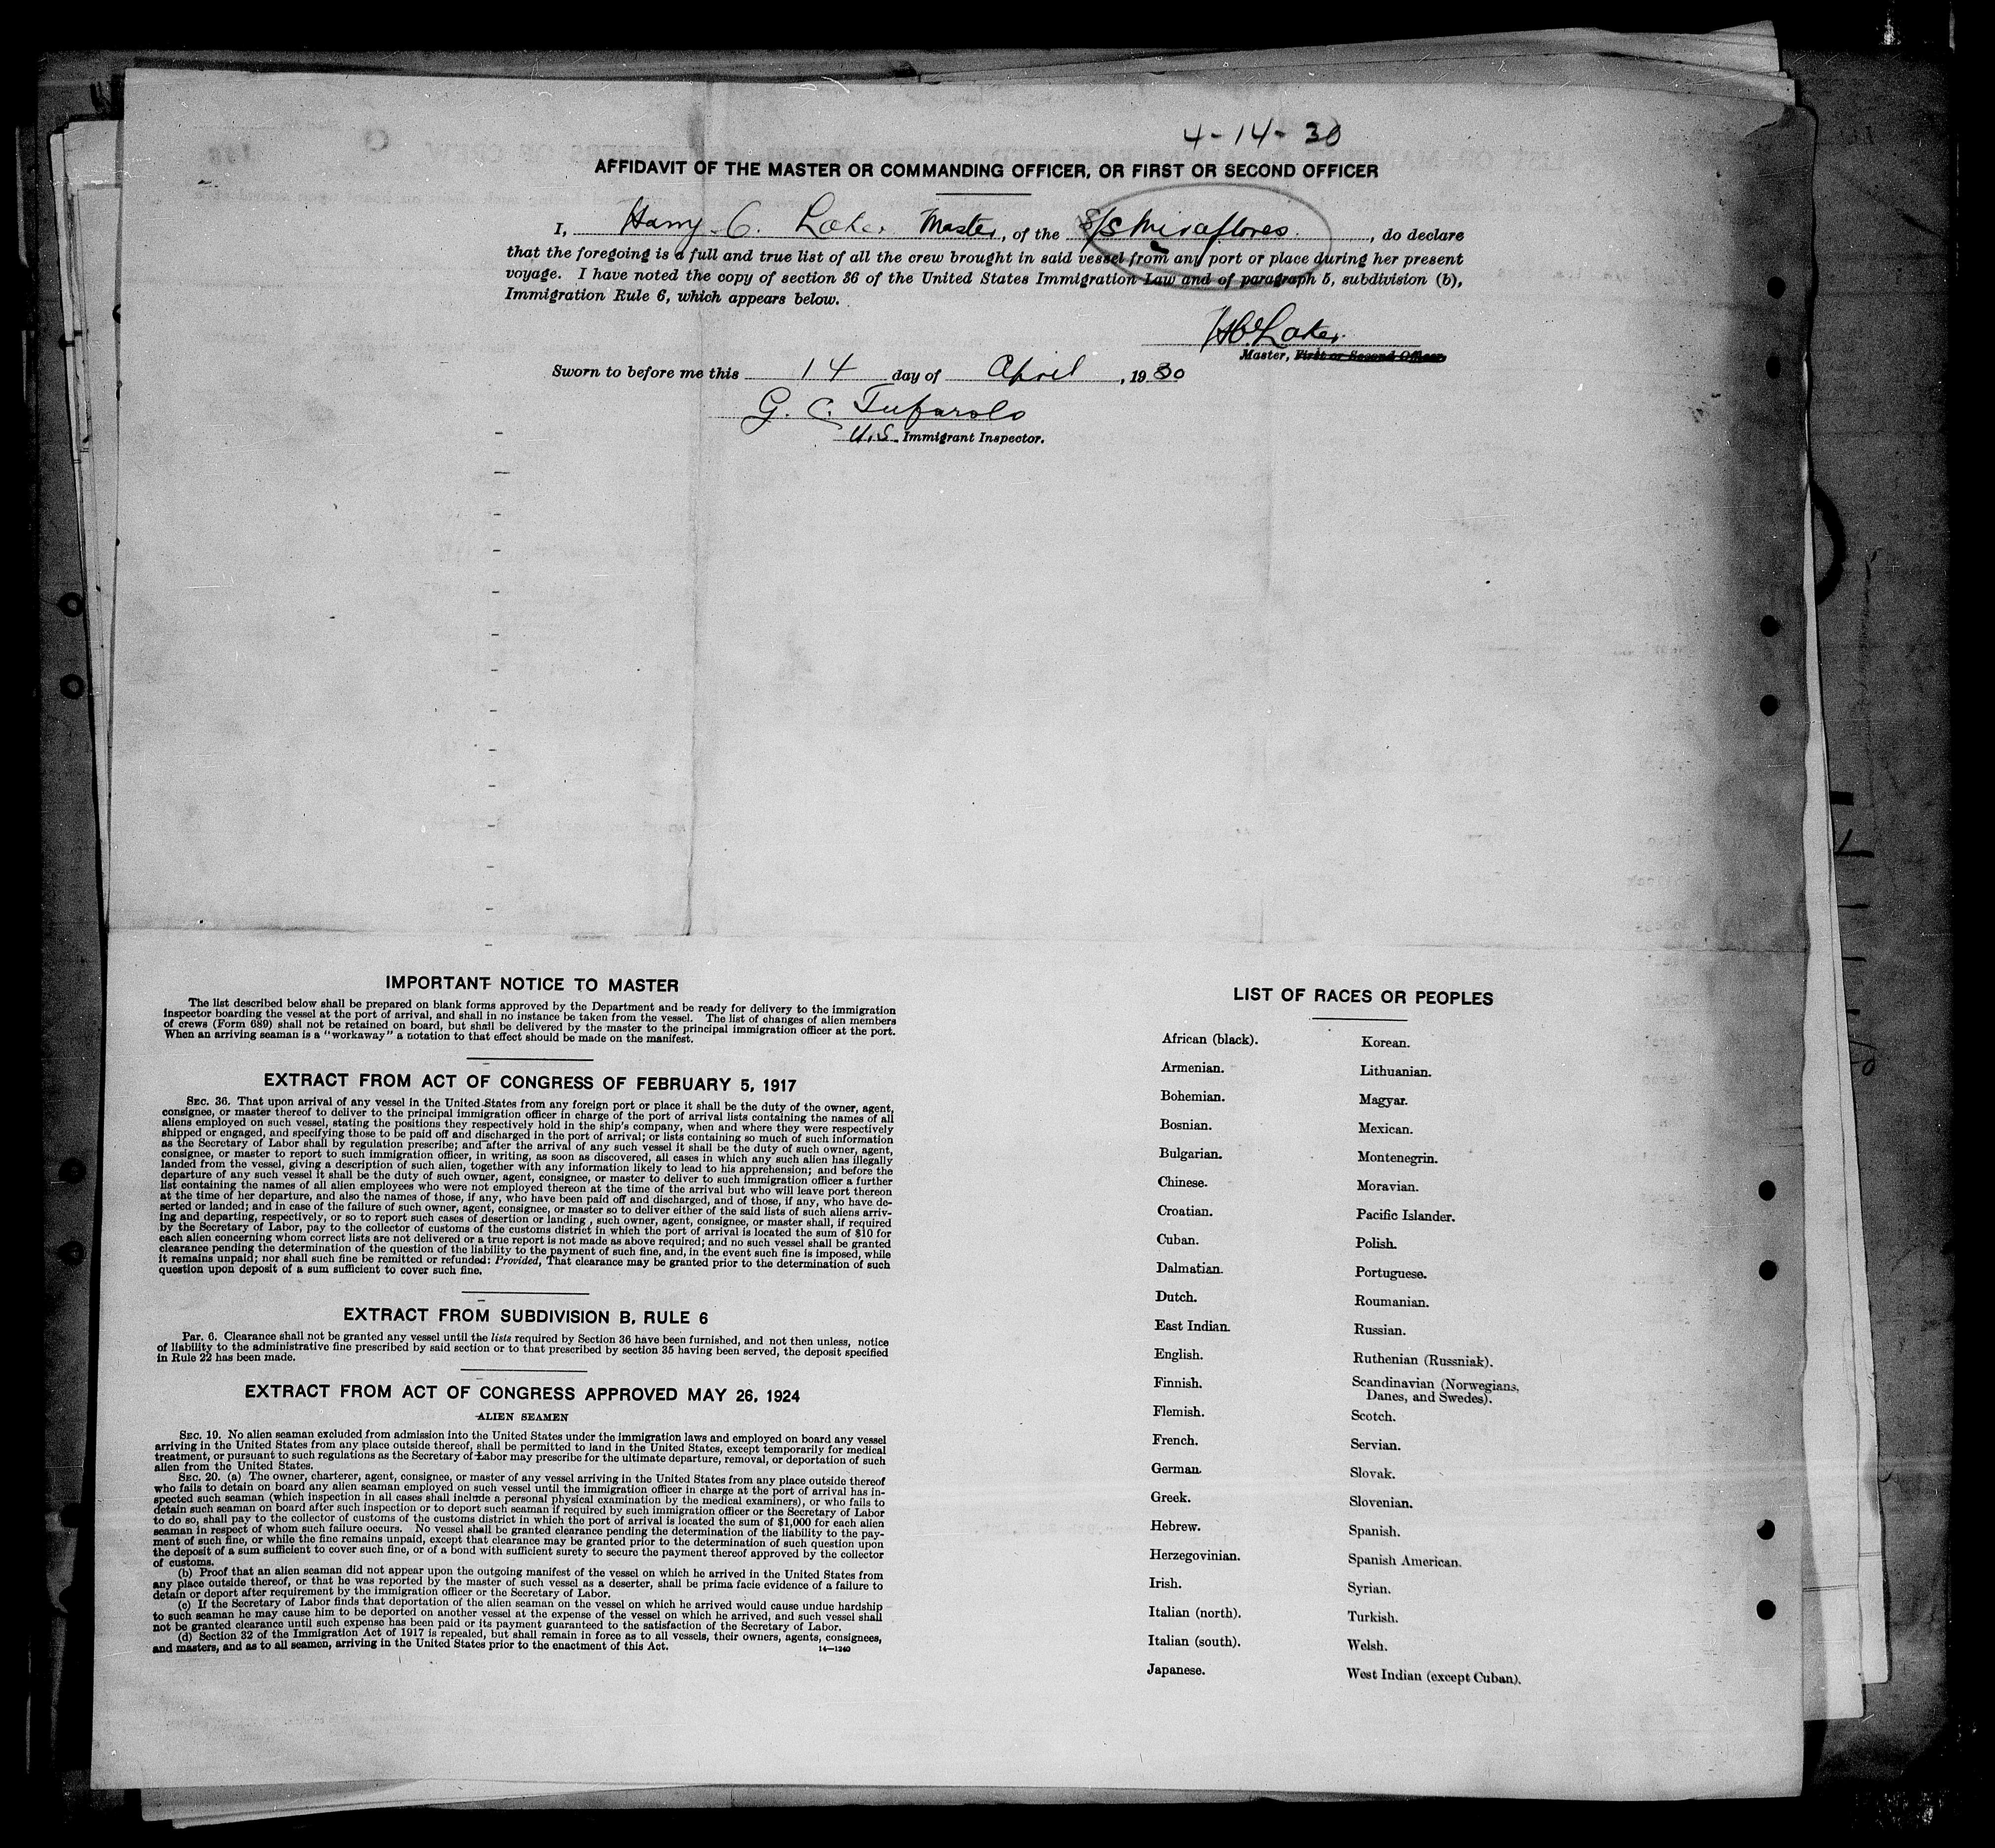 4-14-30
AFFIDAVIT OF THE MASTER OR COMMANDING OFFICER, OR FIRST OR SECOND OFFICER
I, Harry C. Laker Master, of the S/S Miraflores, do declare
that the foregoing is a full and true list of all the crew brought in said vessel from any port or place during her present
voyage. I have noted the copy of section 36 of the United States Immigration Law and of paragraph 5, subdivision (b),
Immigration Rule 6, which appears below.
HC Laker
Master, First or Second Officer.
Sworn to before me this 14 day of April, 1930
G. C. Tufarolo
U.S. Immigrant Inspector.
IMPORTANT NOTICE TO MASTER
The list described below shall be prepared on blank forms approved by the Department and be ready for delivery to the immigration
inspector boarding the vessel at the port of arrival, and shall in no instance be taken from the vessel. The list of changes of alien members
of crews (Form 689) shall not be retained on board, but shall be delivered by the master to the principal immigration officer at the port.
When an arriving seaman is a "workaway" a notation to that effect should be made on the manifest.
EXTRACT FROM ACT OF CONGRESS OF FEBRUARY 5, 1917
SEC. 36. That upon arrival of any vessel in the United States from any foreign port or place it shall be the duty of the owner, agent,
consignee, or master thereof to deliver to the principal immigration officer in charge of the port of arrival lists containing the names of all
aliens employed on such vessel, stating the positions they respectively hold in the ship's company, when and where they were respectively
shipped or engaged, and specifying those to be paid off and discharged in the port of arrival; or lists containing so much of such information
as the Secretary of Labor shall by regulation prescribe; and after the arrival of any such vessel it shall be the duty of such owner, agent,
consignee, or master to report to such immigration officer, in writing, as soon as discovered, all cases in which any such alien has illegally
landed from the vessel, giving a description of such alien, together with any information likely to lead to his apprehension; and before the
departure of any such vessel it shall be the duty of such owner, agent, consignee, or master to deliver to such immigration officer a further
list containing the names of all alien employees who were not employed thereon at the time of the arrival but who will leave port thereon
at the time of her departure, and also the names of those, if any, who have been paid off and discharged, and of those, if any, who have de-
serted or landed; and in case of the failure of such owner, agent, consignee, or master so to deliver either of the said lists of such aliens arriv-
ing and departing, respectively, or so to report such cases of desertion or landing, such owner, agent, consignee, or master shall, if required
by the Secretary of Labor, pay to the collector of customs of the customs district in which the port of arrival is located the sum of $10 for
each alien concerning whom correct lists are not delivered or a true report is not made as above required; and no such vessel shall be granted
clearance pending the determination of the question of the liability to the payment of such fine, and, in the event such fine is imposed, while
it remains unpaid; nor shall such fine be remitted or refunded: Provided, That clearance may be granted prior to the determination of such
question upon deposit of a sum sufficient to cover such fine.
EXTRACT FROM SUBDIVISION B, RULE 6
Par. 6. Clearance shall not be granted any vessel until the lists required by Section 36 have been furnished, and not then unless, notice
of liability to the administrative fine prescribed by said section or to that prescribed by section 35 having been served, the deposit specified
in Rule 22 has been made.
EXTRACT FROM ACT OF CONGRESS APPROVED MAY 26, 1924
ALIEN SEAMEN
SEC. 19. No alien seaman excluded from admission into the United States under the immigration laws and employed on board any vessel
arriving in the United States from any place outside thereof, shall be permitted to land in the United States, except temporarily for medical
treatment, or pursuant to such regulations as the Secretary of Labor may prescribe for the ultimate departure, removal, or deportation of such
alien from the United States.
SEC. 20. (a) The owner, charterer, agent, consignee, or master of any vessel arriving in the United States from any place outside thereof
who fails to detain on board any alien seaman employed on such vessel until the immigration officer in charge at the port of arrival has in-
spected such seaman (which inspection in all cases shall include a personal physical examination by the medical examiners), or who fails to
detain such seaman on board after such inspection or to deport such seaman if required by such immigration officer or the Secretary of Labor
to do so, shall pay to the collector of customs of the customs district in which the port of arrival is located the sum of $1,000 for each alien
seaman in respect of whom such failure occurs. No vessel shall be granted clearance pending the determination of the liability to the pay-
ment of such fine, or while the fine remains unpaid, except that clearance may be granted prior to the determination of such question upon
the deposit of a sum sufficient to cover such fine, or of a bond with sufficient surety to secure the payment thereof approved by the collector
of customs.
(b) Proof that an alien seaman did not appear upon the outgoing manifest of the vessel on which he arrived in the United States from
any place outside thereof, or that he was reported by the master of such vessel as a deserter, shall be prima facie evidence of a failure to
detain or deport after requirement by the immigration officer or the Secretary of Labor.
(c) If the Secretary of Labor finds that deportation of the alien seaman on the vessel on which he arrived would cause undue hardship
to such seaman he may cause him to be deported on another vessel at the expense of the vessel on which he arrived, and such vessel shall
not be granted clearance until such expense has been paid or its payment guaranteed to the satisfaction of the Secretary of Labor.
(d) Section 32 of the Immigration Act of 1917 is repealed, but shall remain in force as to all vessels, their owners, agents, consignees,
and masters, and as to all seamen, arriving in the United States prior to the enactment of this Act.
14—1240
LIST OF RACES OR PEOPLES
African (black).
Armenian.
Bohemian.
Bosnian.
Bulgarian.
Chinese.
Croatian.
Cuban.
Dalmatian.
Dutch.
East Indian.
English.
Finnish.
Flemish.
French.
German.
Greek.
Hebrew.
Herzegovinian.
Irish.
Italian (north).
Italian (south).
Japanese.
Korean.
Lithuanian.
Magyar.
Mexican.
Montenegrin.
Moravian.
Pacific Islander.
Polish.
Portuguese.
Roumanian.
Russian.
Ruthenian (Russniak).
Scandinavian (Norwegians,
Danes, and Swedes).
Scotch.
Servian.
Slovak.
Slovenian.
Spanish.
Spanish American.
Syrian.
Turkish.
Welsh.
West Indian (except Cuban).